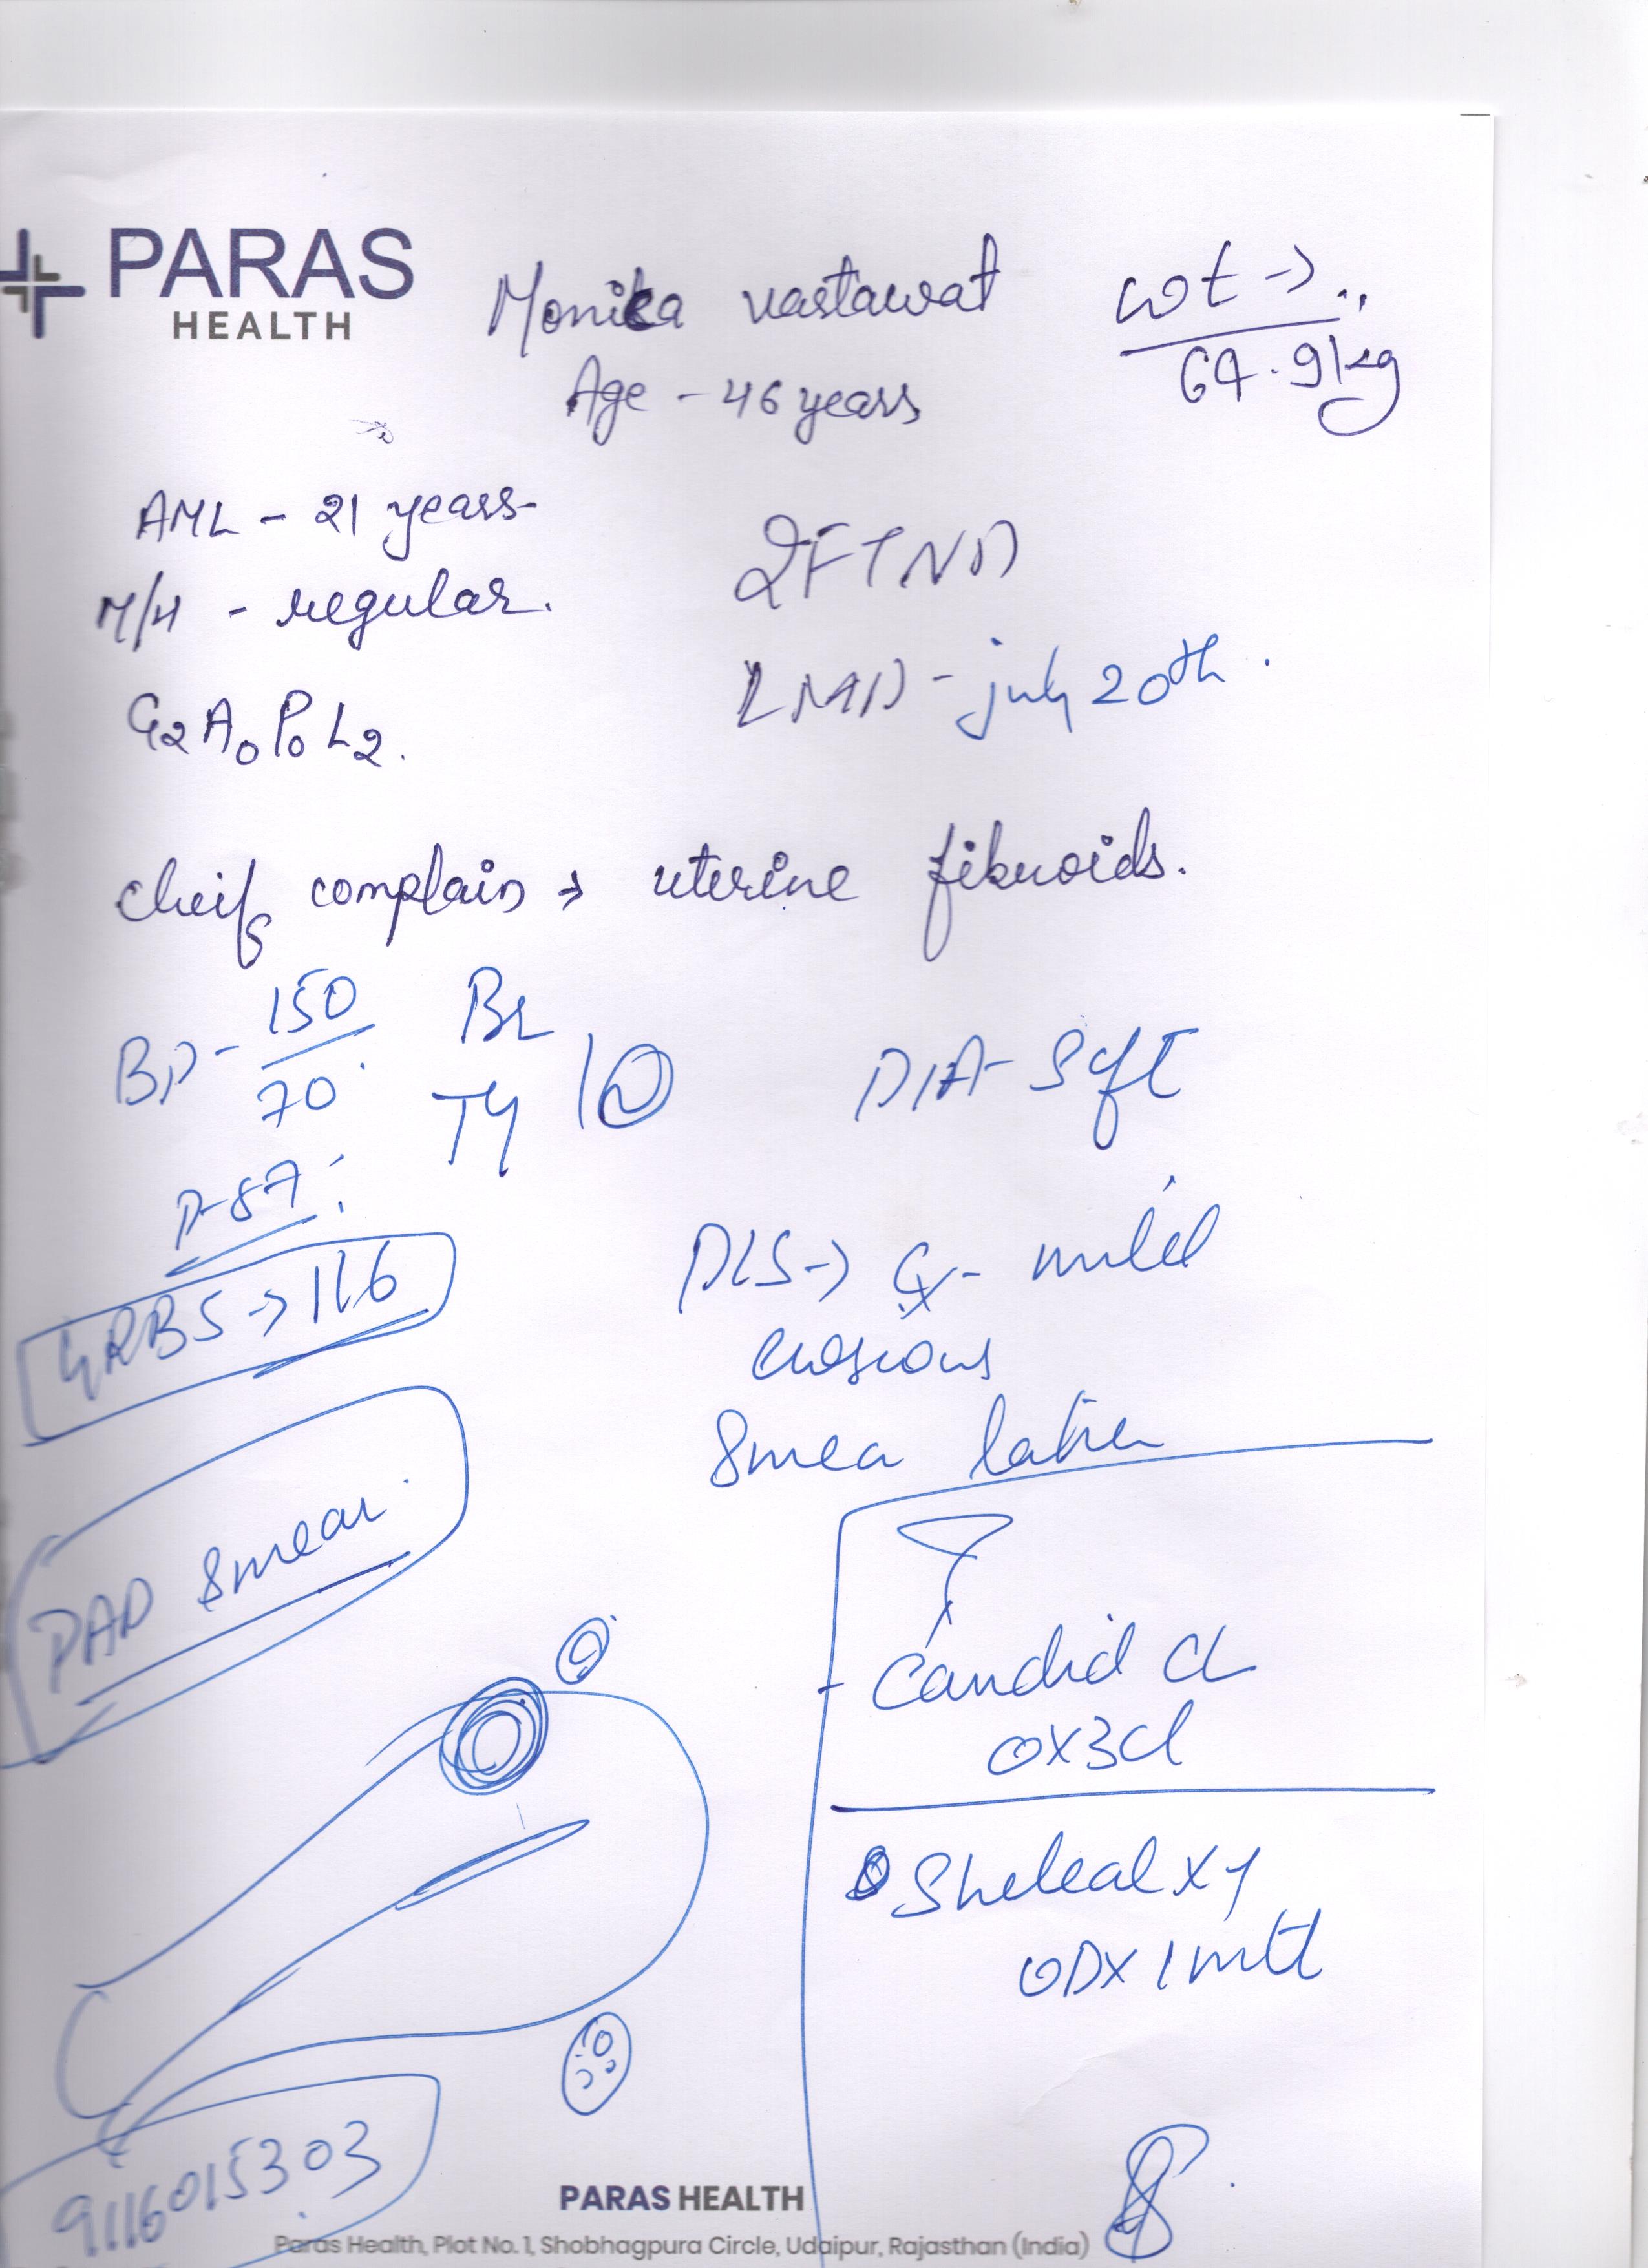 PARAS
HEALTH
Monika vastawat
Age - 46 years
wt →
64.9 kg
AML - 21 years
M/H - regular.
2FTND
LMP - july 20th.
G2A0P0L2.
cheif complain → uterine fibroids.
BP - 150/70
Br
Ty
P-87
P/A- Soft
GRBS → 116
P/S → Cx - mild
erosions
Smear taken
PAP Smear
Candid CL
Ox3d
Shelcal XT
ODx 1 mth
9116015303
PARAS HEALTH
Paras Health, Plot No. 1, Shobhagpura Circle, Udaipur, Rajasthan (India)